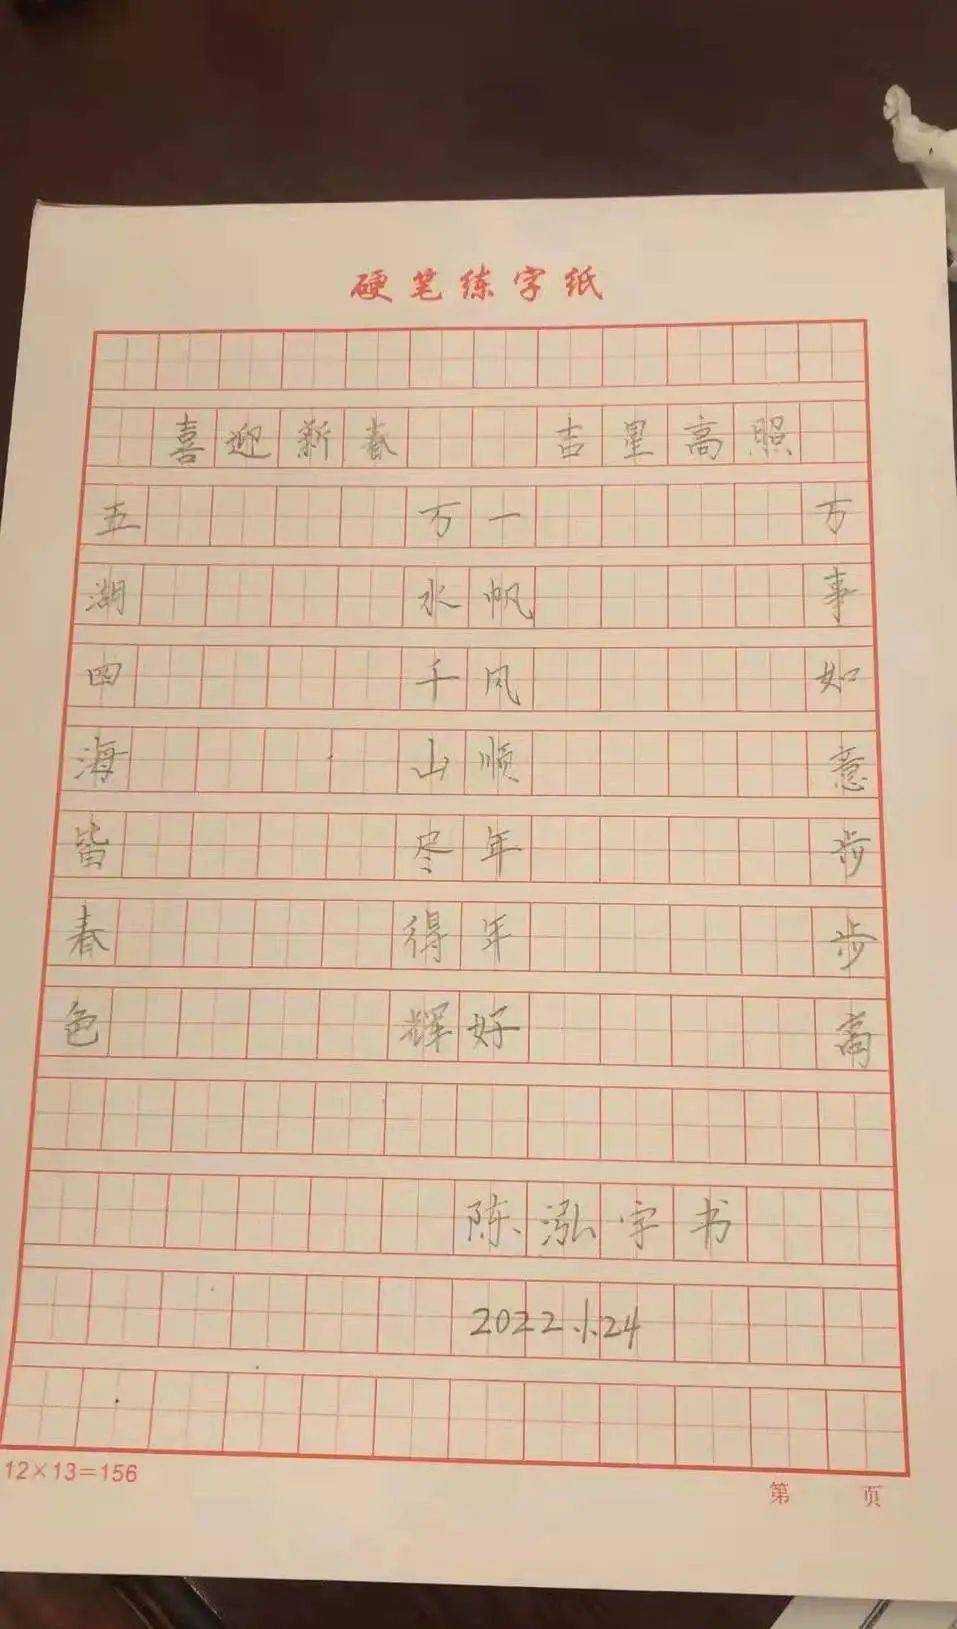 硬笔练字纸
喜迎新春
五湖四海皆春色
万水千山尽得辉
吉星高照
一帆风顺年年好
万事如意步步高
陈泓宇书
2022.1.24
12×13=156
第 页